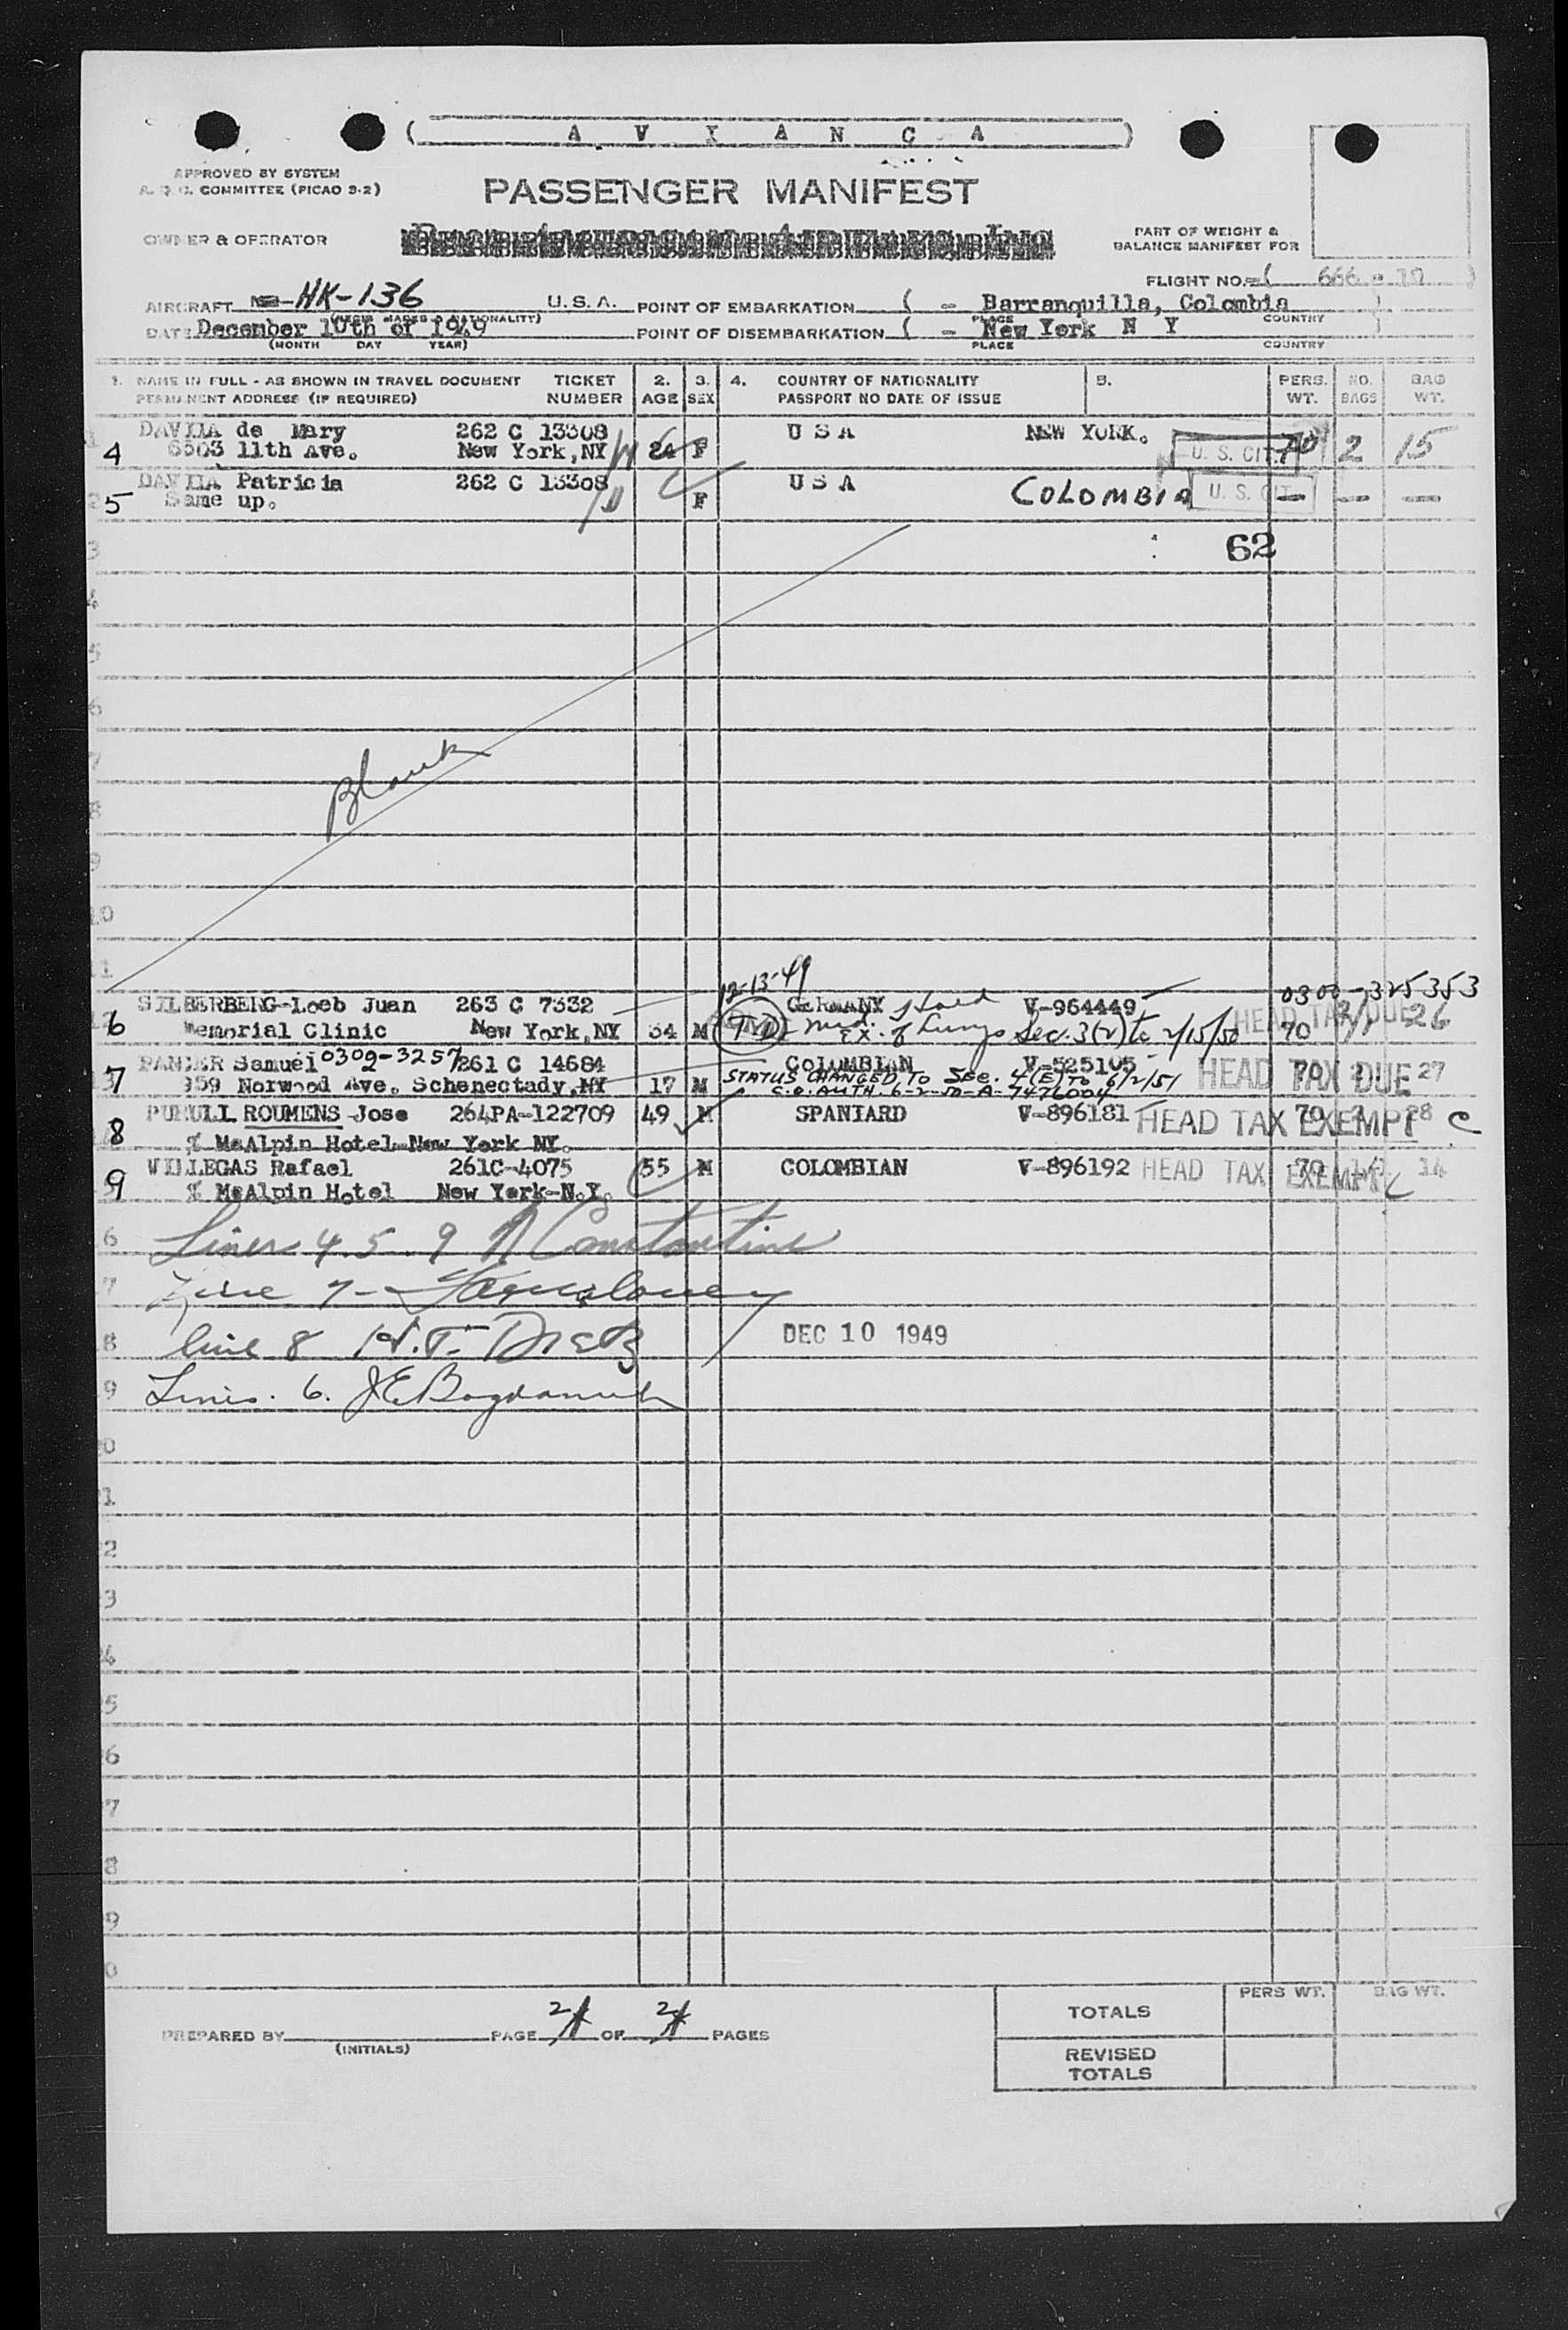 ( A V I A N C A )
APPROVED BY SYSTEM
COMMITTEE (PICAO S-2)
PASSENGER MANIFEST
OWNER & OPERATOR
PART OF WEIGHT &
BALANCE MANIFEST FOR
FLIGHT NO. ( 666 - 10 )
AIRCRAFT HK-136 U.S.A. POINT OF EMBARKATION ( - Barranquilla, Colombia )
PLACE COUNTRY
DATE December 10th of 1949 POINT OF DISEMBARKATION ( - New York N Y )
(MONTH DAY YEAR) PLACE COUNTRY
1. NAME IN FULL - AS SHOWN IN TRAVEL DOCUMENT TICKET 2. 3. 4. COUNTRY OF NATIONALITY 5. PERS. NO. BAG
PERMANENT ADDRESS (IF REQUIRED) NUMBER AGE SEX PASSPORT NO DATE OF ISSUE WT. BAGS WT.
1 DAVILA de Mary 262 C 13308 U S A NEW YORK.
4 6503 11th Ave. New York, NY 24 F U. S. CIT. 70 2 15
DAVILA Patricia 262 C 13308 U S A
2 5 Same up. F COLOMBIA U. S. CIT. — — —
3 62
4
5
6
7 Blank
8
9
10
11
12-13-49
SILBERBERG-Loeb Juan 263 C 7332 GERMANY V-964449 0300-325353
6 Memorial Clinic New York, NY 34 M Ex. of Lungs Sec. 3(2) to 2/15/50 HEAD TAX DUE 70 26
Samuel 0309-3257 261 C 14684 COLOMBIAN V-525105
7 959 Norwood Ave. Schenectady, NY 17 M STATUS CHANGED TO SEC. 4(E) TO 6/2/51 HEAD TAX DUE 70 27
C.O. AUTH. 6-2- A-7476004
ROUMENS Jose 264PA-122709 49 M SPANIARD V-896181 HEAD TAX EXEMPT 70 28 C
8 % McAlpin Hotel-New York NY.
VILLEGAS Rafael 261C-4075 55 M COLOMBIAN V-896192 HEAD TAX EXEMPT 70 14
9 % McAlpin Hotel New York-N.Y.
6 Lines 4 5 9 Constantine
7 Line 7-
8 line 8 H.T. Dietz DEC 10 1949
9 Lines. 6.
0
1
2
3
4
5
6
7
8
9
0
PERS WT. BAG WT.
TOTALS
PREPARED BY PAGE 2 OF 2 PAGES
(INITIALS)
REVISED
TOTALS